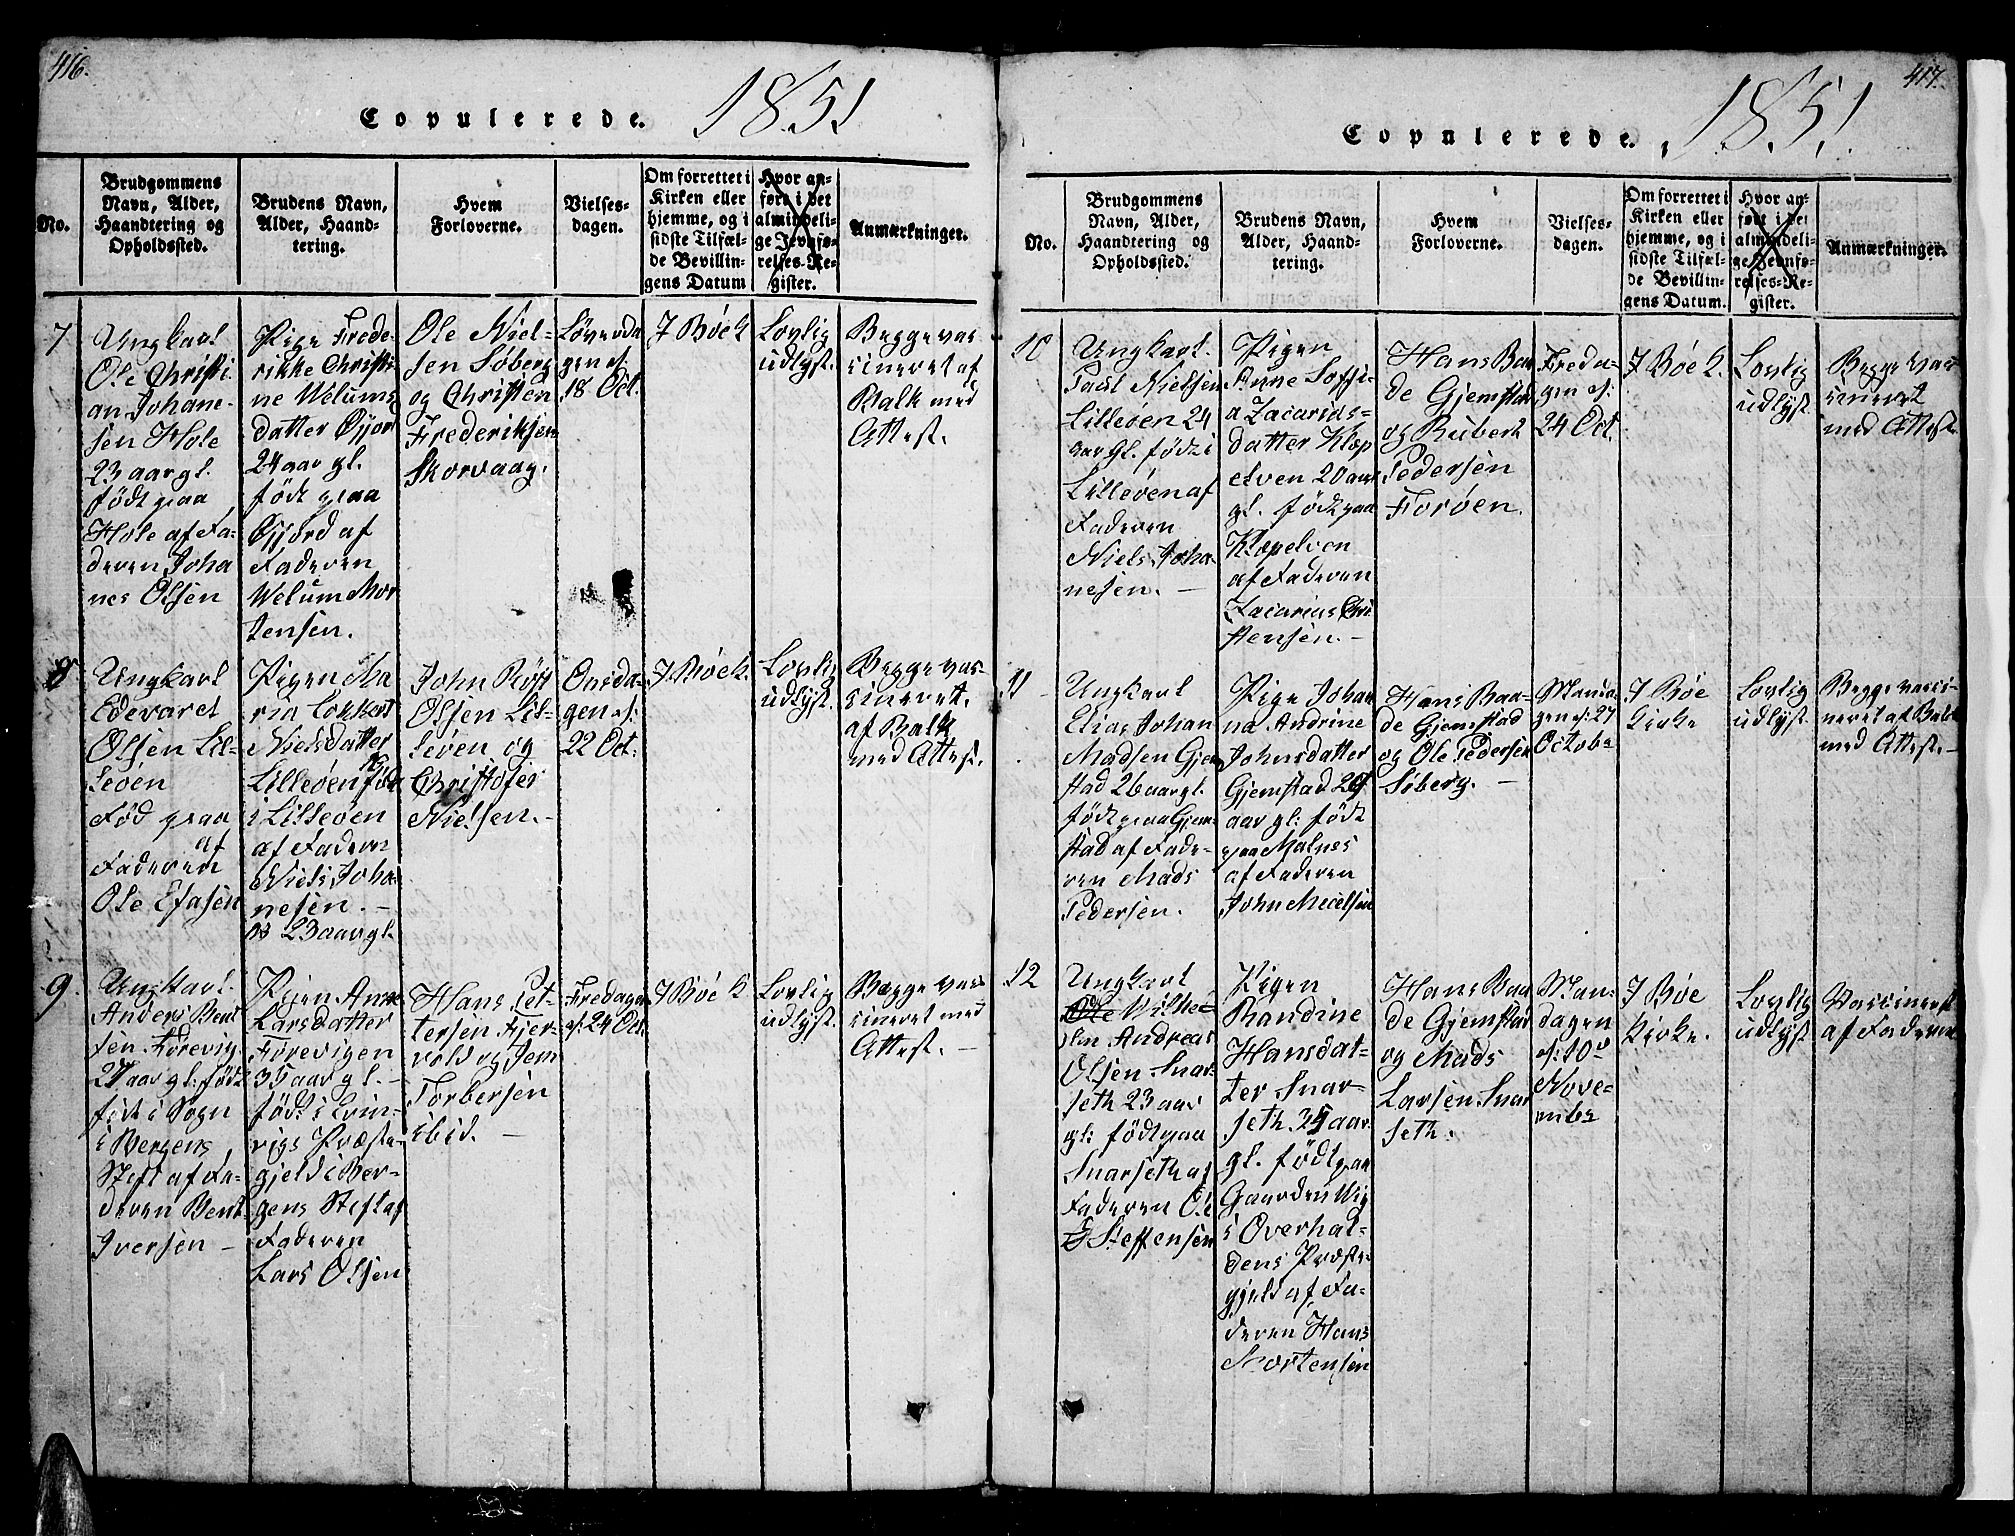 416.
Copulerede. 1851
No.
Brudgommens
Navn, Alder,
Haandtering og
Opholdssted.
Brudens Navn,
Alder, Haand-
tering.
Hvem
Forloverne.
Vielses-
dagen.
Om forrettet i
Kirken eller
hjemme, og i
sidste Tilfæl-
de Bevillin-
gens Datum
Hvor an-
ført i det
almindeli-
ge Jevnfø-
relses-Re-
gister.
Anmærkninger.
7
Ungkarl
Ole Christi
an Johane-
sen Hole
23 aar gl.
født paa
Hole af Fa-
deren Joha
nes Olsen
Pige Frede-
rikke Christi-
ne Welums
datter Øfjor
24 aar gl.
født paa
Øfjord af
Faderen
Welum Mor
tensen.
Ole Niel-
sen Søberg
og Christen
Frederiksen
Skorvaag.
Løverda
gen d:
18 Oct.
I Bøe K
Lovlig
udlyst.
Begge vac
cineret af
Balk med
Attest.
8
Ungkarl
Edevart
Olsen Lil-
leøen
Fød paa
af
Faderen
Ole Efasen
Pigen Ma
ria Lokkert
Nielsdatter
Lilleøen fød
i Lilleøen
af Fadere
Niels Joha-
nesen. -
23 aar gl.
John Røst
Olsen Lil-
leøen og
Christofer
Nielsen. -
Onsda-
gen d:
22 Oct.
I Bøe K.
Lovlig
udlyst.
Begge vac-
cineret
af Balk
med Attest.
9
Ungkarl
Anders Bent
sen Forevig.
27 aar gl: født
født i Sogn
i Bergens
Stift af Fa-
deren Bent
Iversen -
Pigen Anne
Larsdatter
Forevigen
35 aar gl. -
født i Evin-
vigs Præste-
gjeld i Ber-
gens Stift af
Faderen
Lars Olsen
Hans Pet-
tersen Fjer-
vold og Jem
Torbersen
ibid. -
Fredagen
d: 24 Oct.
I Bøe K
Lovlig
udlyst.
Begge vac
cineret med
Attest. -
417.
Copulerede. 1851.
No.
Brudgommens
Navn, Alder,
Haandtering og
Opholdssted.
Brudens Navn,
Alder, Haand-
tering.
Hvem
Forloverne.
Vielses-
dagen.
Om forrettet i
Kirken eller
hjemme, og i
sidste Tilfæl-
de Bevillin-
gens Datum.
Hvor an-
ført i det
almindeli-
ge Jevnfø-
relses-Re-
gister.
Anmærkninger.
10
Ungkarl.
Paul Nielsen
Lilleøen 24
aar gl. født i
Lilleøen af
Faderen
Niels Joha-
nesen. -
Pigen
Anne Soffi-
a Zacarias-
datter Klop
elven 20 aar
gl. født paa
Klopelven
af Faderen
Zacarias Chri
stensen. -
Hans Baa
de Gjemstad
og Rubert
Pedersen
Forøen.
Freda-
gen d:
24 Oct.
I Bøe K.
Lovlig
udlyst
Begge vac
cineret
med Attest.
11
Ungkarl
Elias Johan
Madsen Gjem
stad 26 aar gl.
født paa Gjem-
stad af Fade-
ren Mads
Pedersen.
Pige Johan
na Andrine
Johnsdatter
Gjemstad 29
aar gl: født
paa Malnes
af Faderen
John Mecelsen
Hans Baa-
de Gjemstad
og Ole Pedersen
Søberg. -
Manda
gen d: 27
Octobr
I Bøe
Kirke
Lovlig
udlyst
Begge vacci-
neret af Balk
med Attest. -
12
Ungkarl
Ole Wilhe-
lm Andreas
Olsen Snar-
seth 23 aar
gl: født paa
Snarseth af
Faderen Ole
Steffensen
Pigen
Randine
Hansdat-
ter Snar-
seth. 35 aar
gl. født paa
Gaarden Wig
i Overhal-
dens Præste-
gjeld af Fa-
deren Hans
Mortensen
Hans Baa
de Gjemstad
og Mads
Larsen Snar
seth.
Man-
dagen
d: 10de
Nove-
mbr
I Bøe
Kirke.
Lovlig
udlyst
Vaccineret
af Faderen